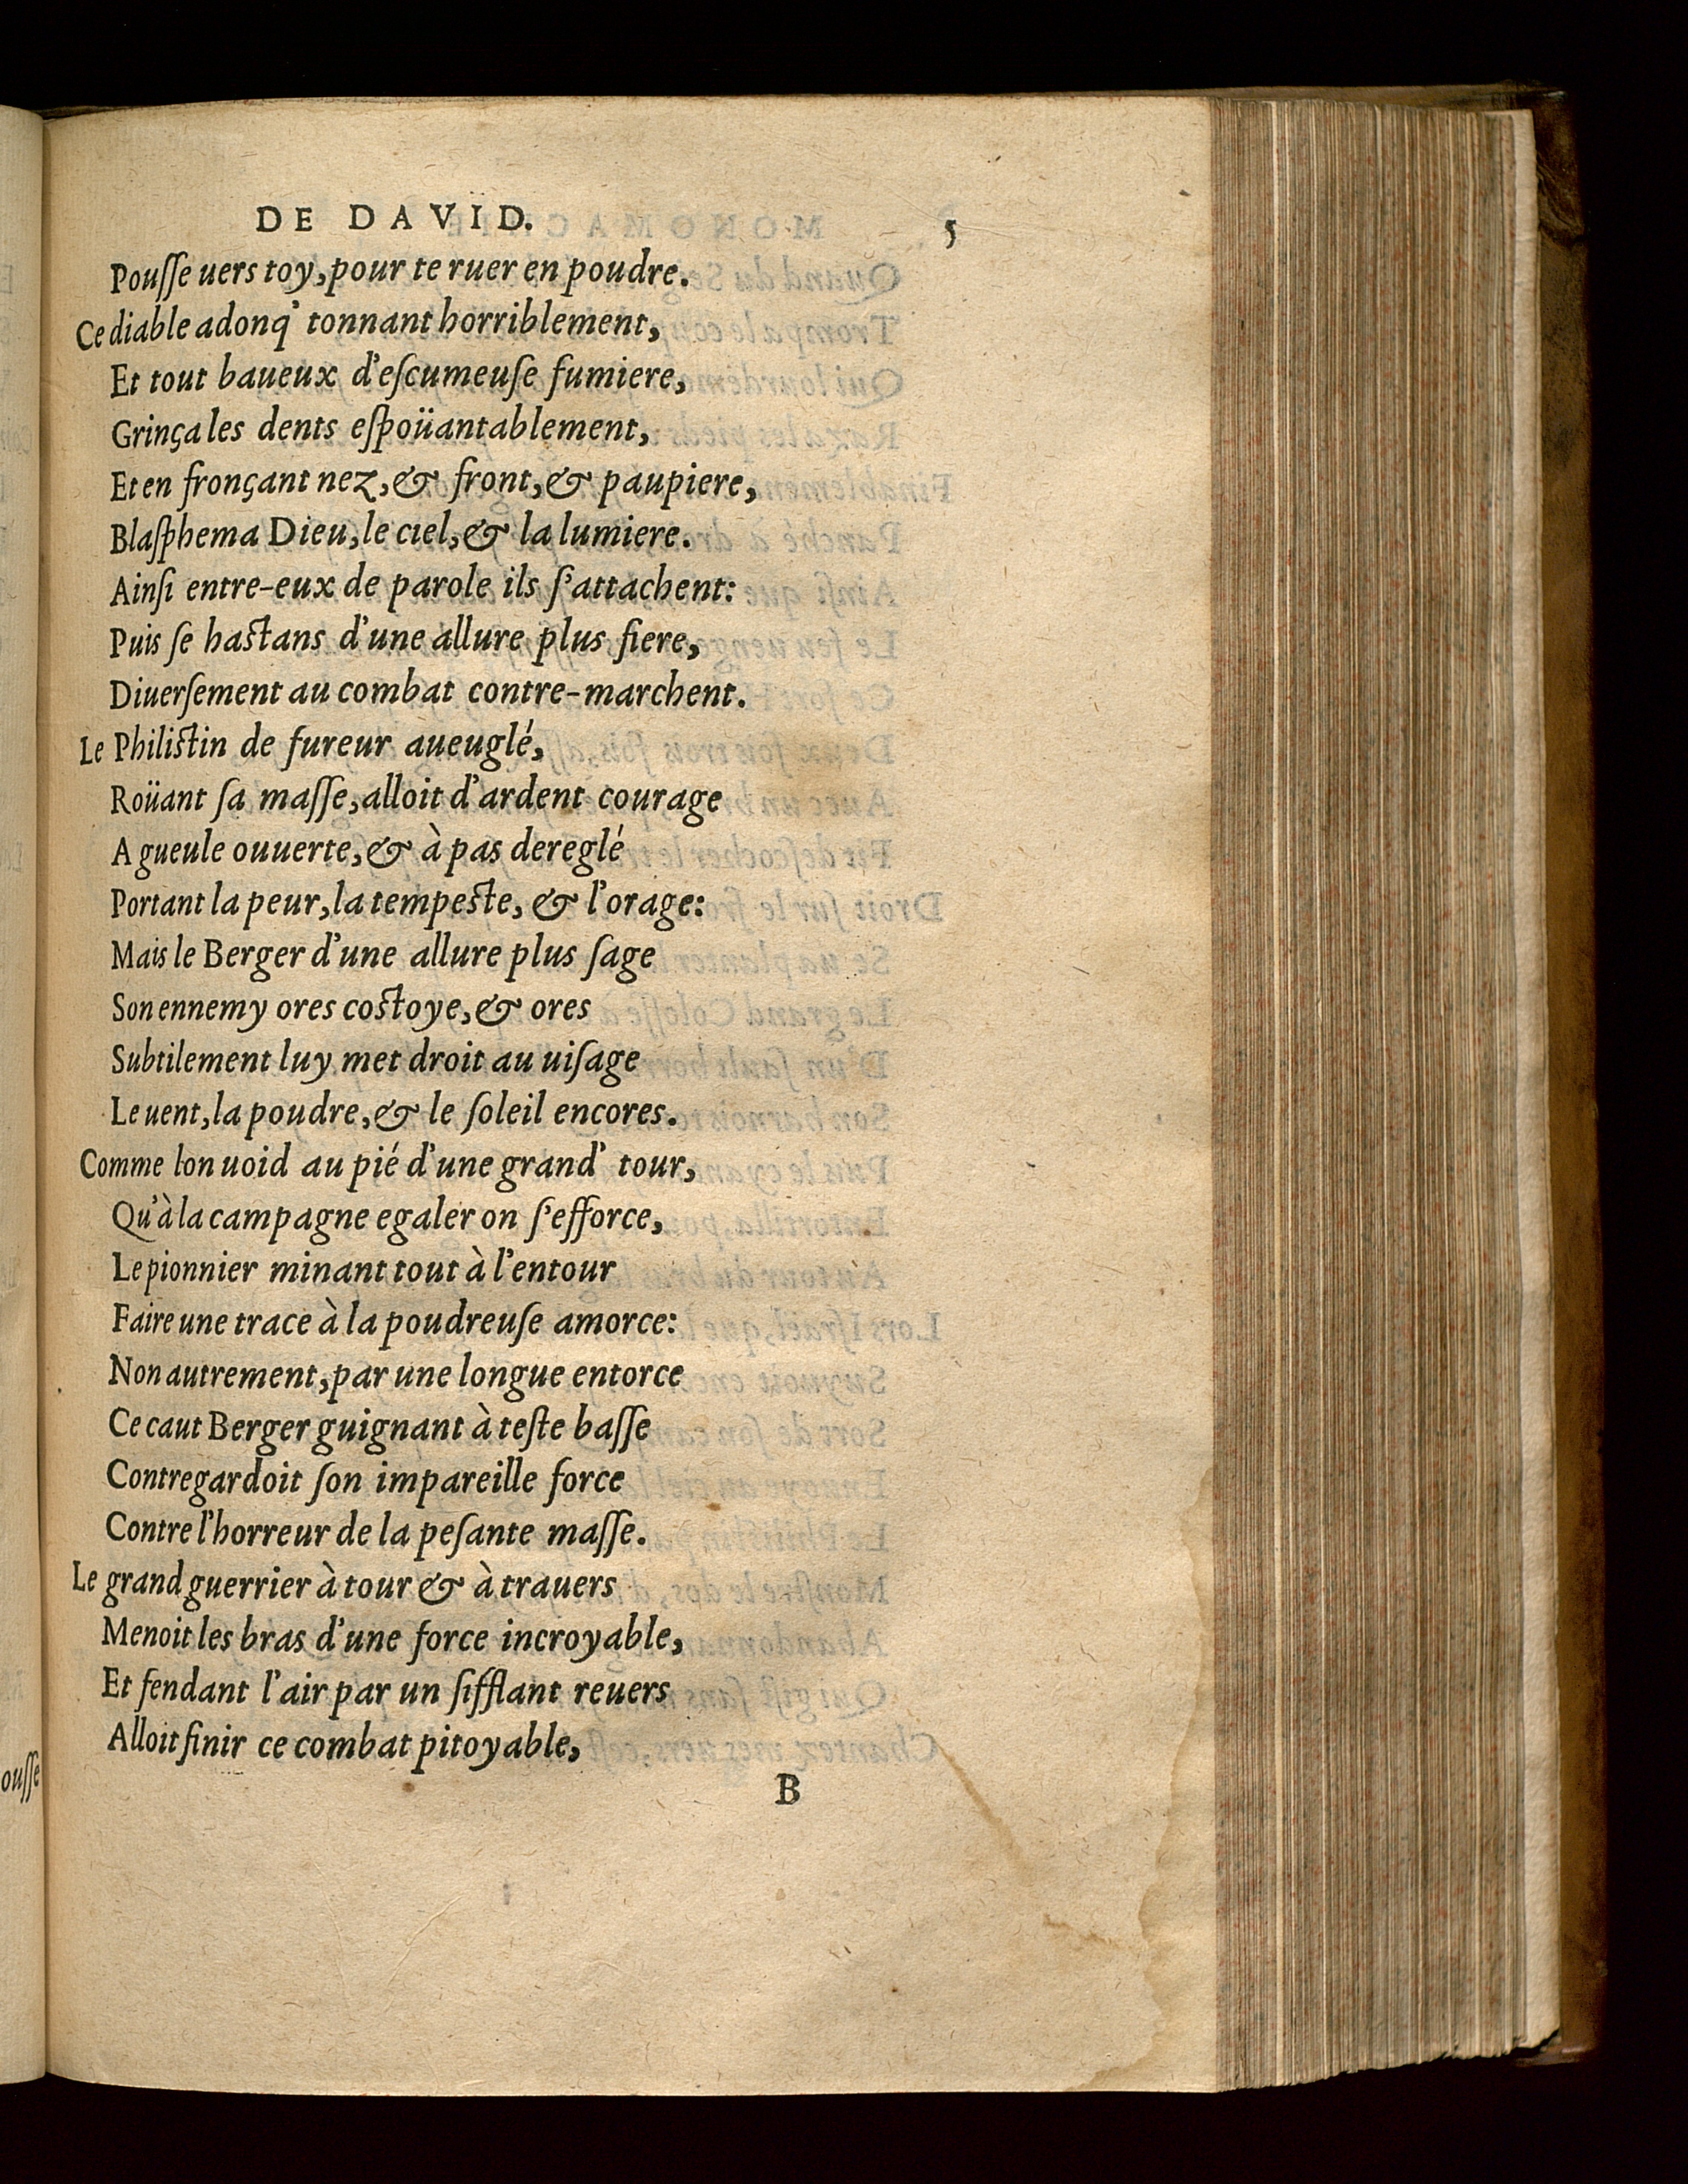 DE DAVID. 5
Pouſſe uers toy, pour te ruer en poudre.
Ce diable adonq' tonnant horriblement,
Et tout baueux d'eſcumeuſe fumiere,
Grinça les dents eſpoüantablement,
Et en fronçant nez, & front, & paupiere,
Blaſphema Dieu, le ciel, & la lumiere.
Ainſi entre-eux de parole ils ſ'attachent:
Puis ſe haſtans d'une allure plus fiere,
Diuerſement au combat contre-marchent.
Le Philiſtin de fureur aueuglé,
Roüant ſa maſſe, alloit d'ardent courage
A gueule ouuerte, & à pas dereglé
Portant la peur, la tempeſte, & l'orage:
Mais le Berger d'une allure plus ſage
Son ennemy ores coſtoye, & ores
Subtilement luy met droit au uiſage
Le uent, la poudre, & le ſoleil encores.
Comme lon uoid au pié d'une grand' tour,
Qu'à la campagne egaler on ſ'efforce,
Le pionnier minant tout à l'entour
Faire une trace à la poudreuſe amorce:
Non autrement, par une longue entorce
Ce caut Berger guignant à teſte baſſe
Contregardoit ſon impareille force
Contre l'horreur de la peſante maſſe.
Le grand guerrier à tour & à trauers
Menoit les bras d'une force incroyable,
Et fendant l'air par un ſifflant reuers
Alloit finir ce combat pitoyable,
B